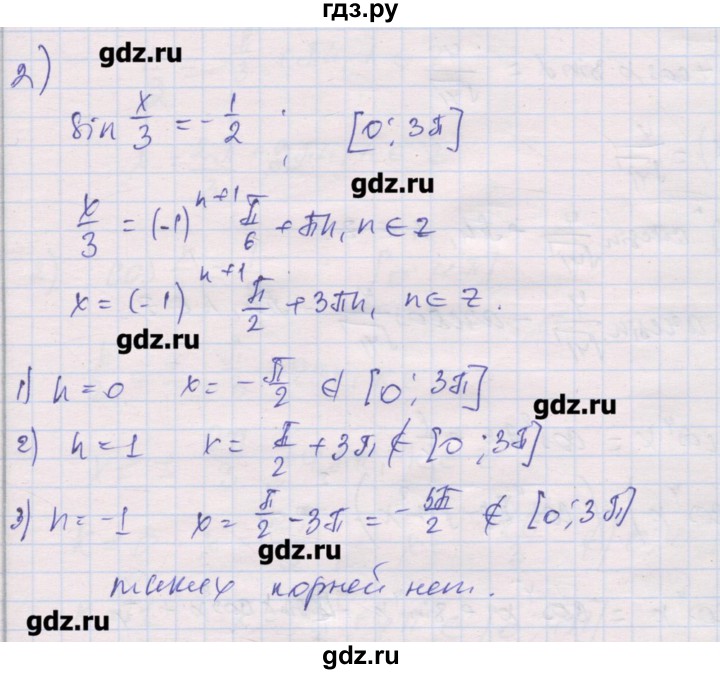 гдз.ру
gdz.ru
2)
sin x/3 = -1/2 ; [0; 3π]
gdz.ru
x/3 = (-1)^(n+1) π/6 + πn, n ∈ Z
x = (-1)^(n+1) π/2 + 3πn, n ∈ Z.
gdz.ru
1) n = 0 x = -π/2 ∉ [0; 3π]
gdz.ru
2) n = 1 x = π/2 + 3π ∉ [0; 3π]
3) n = -1 x = π/2 - 3π = -5π/2 ∉ [0; 3π]
gdz.ru
таких корней нет.
gdz.ru
gdz.ru